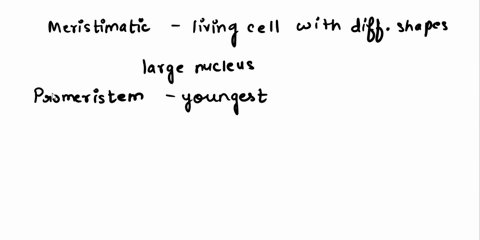 Meristimatic - living cell with diff. shapes
large nucleus
Promeristem - youngest